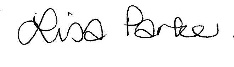 Lisa Parker.